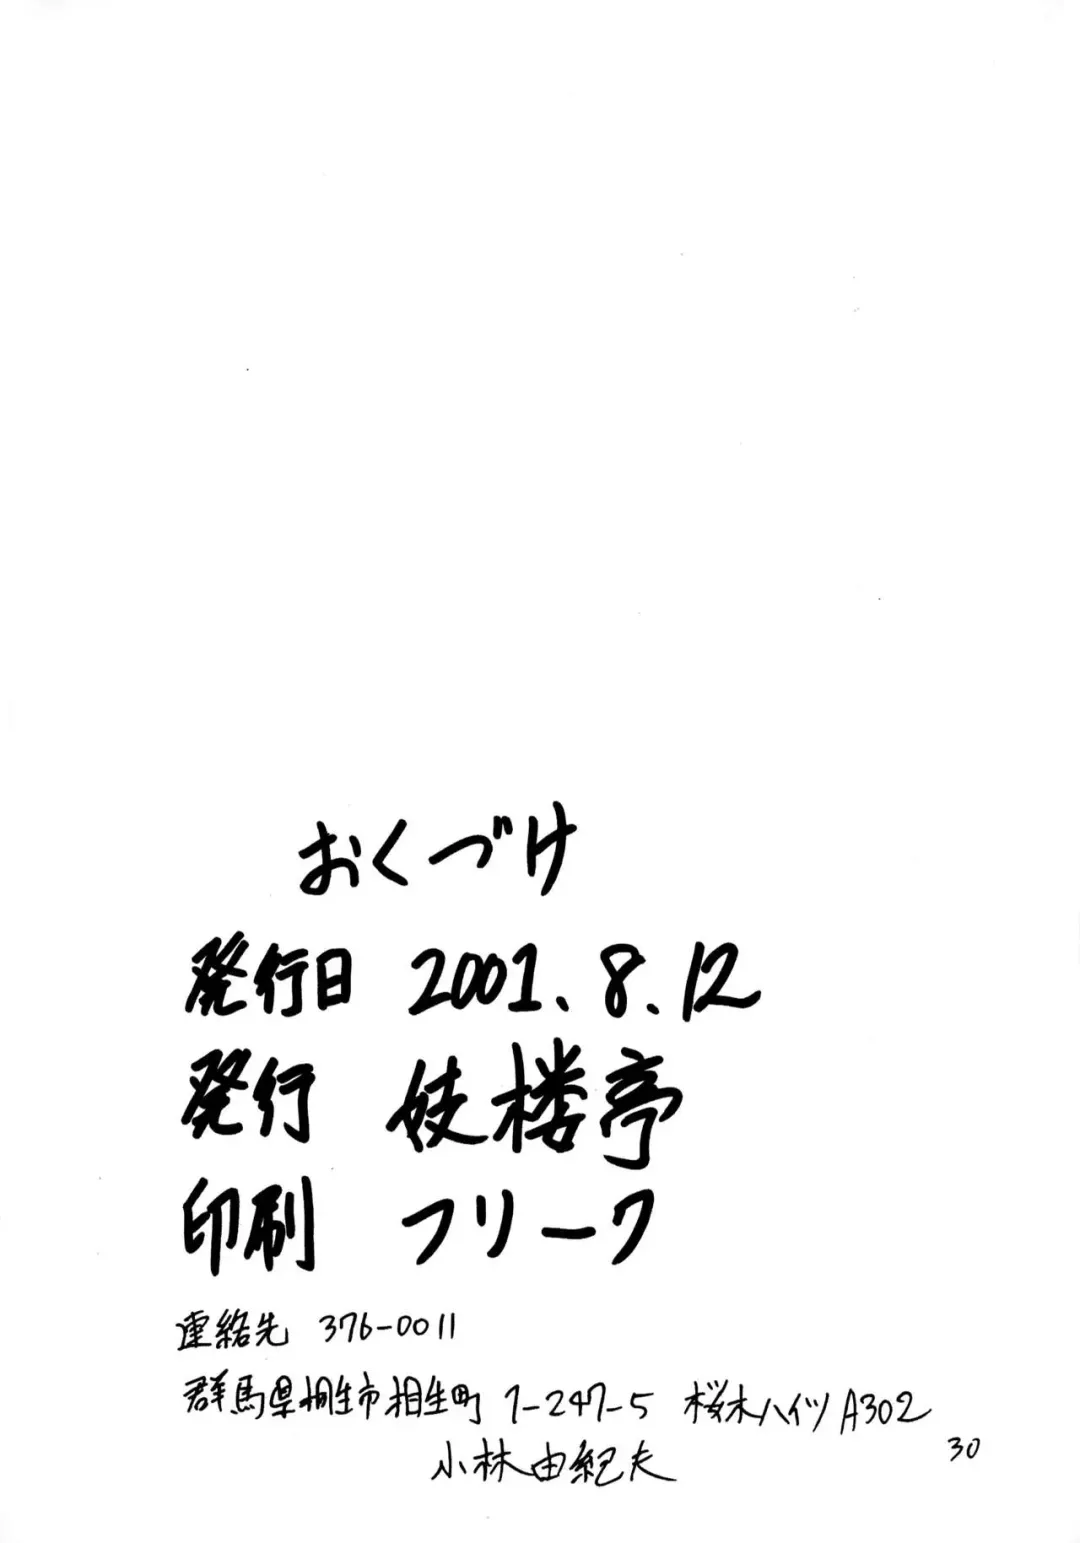 おくづけ
発行日 2001.8.12
発行 妓楼亭
印刷 フリーク
連絡先 376-0011
群馬県桐生市相生町1-247-5 桜木ハイツA302
小林由紀夫
30